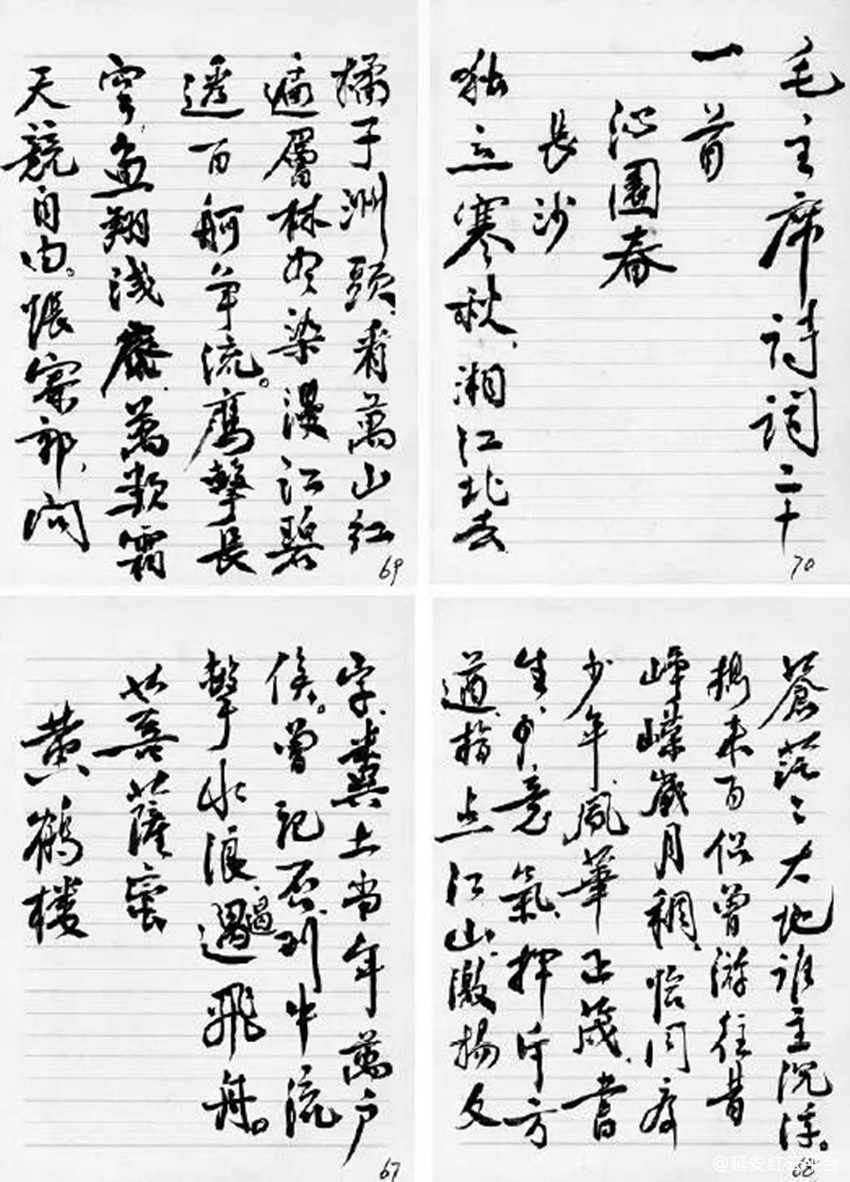 毛主席诗词二十
一首
沁園春
長沙
独立寒秋，湘江北去
70
橘子洲頭，看萬山红
遍層林尽染漫江碧
透百舸争流。鹰擊長
空，鱼翔浅底，萬類霜
天競自由。怅寥郭，问
69
蒼茫々大地谁主沉浮。
携来百侣曾游往昔
峥嵘歲月稠，恰同学
少年，風華正茂，書
生意氣，挥斥方
遒，指点江山，激揚文
68
字，糞土当年萬户
侯。曾记否，到中流
擊水，浪遏飛舟。
遏
菩薩蛮
黄鹤楼
67
@延安红云平台